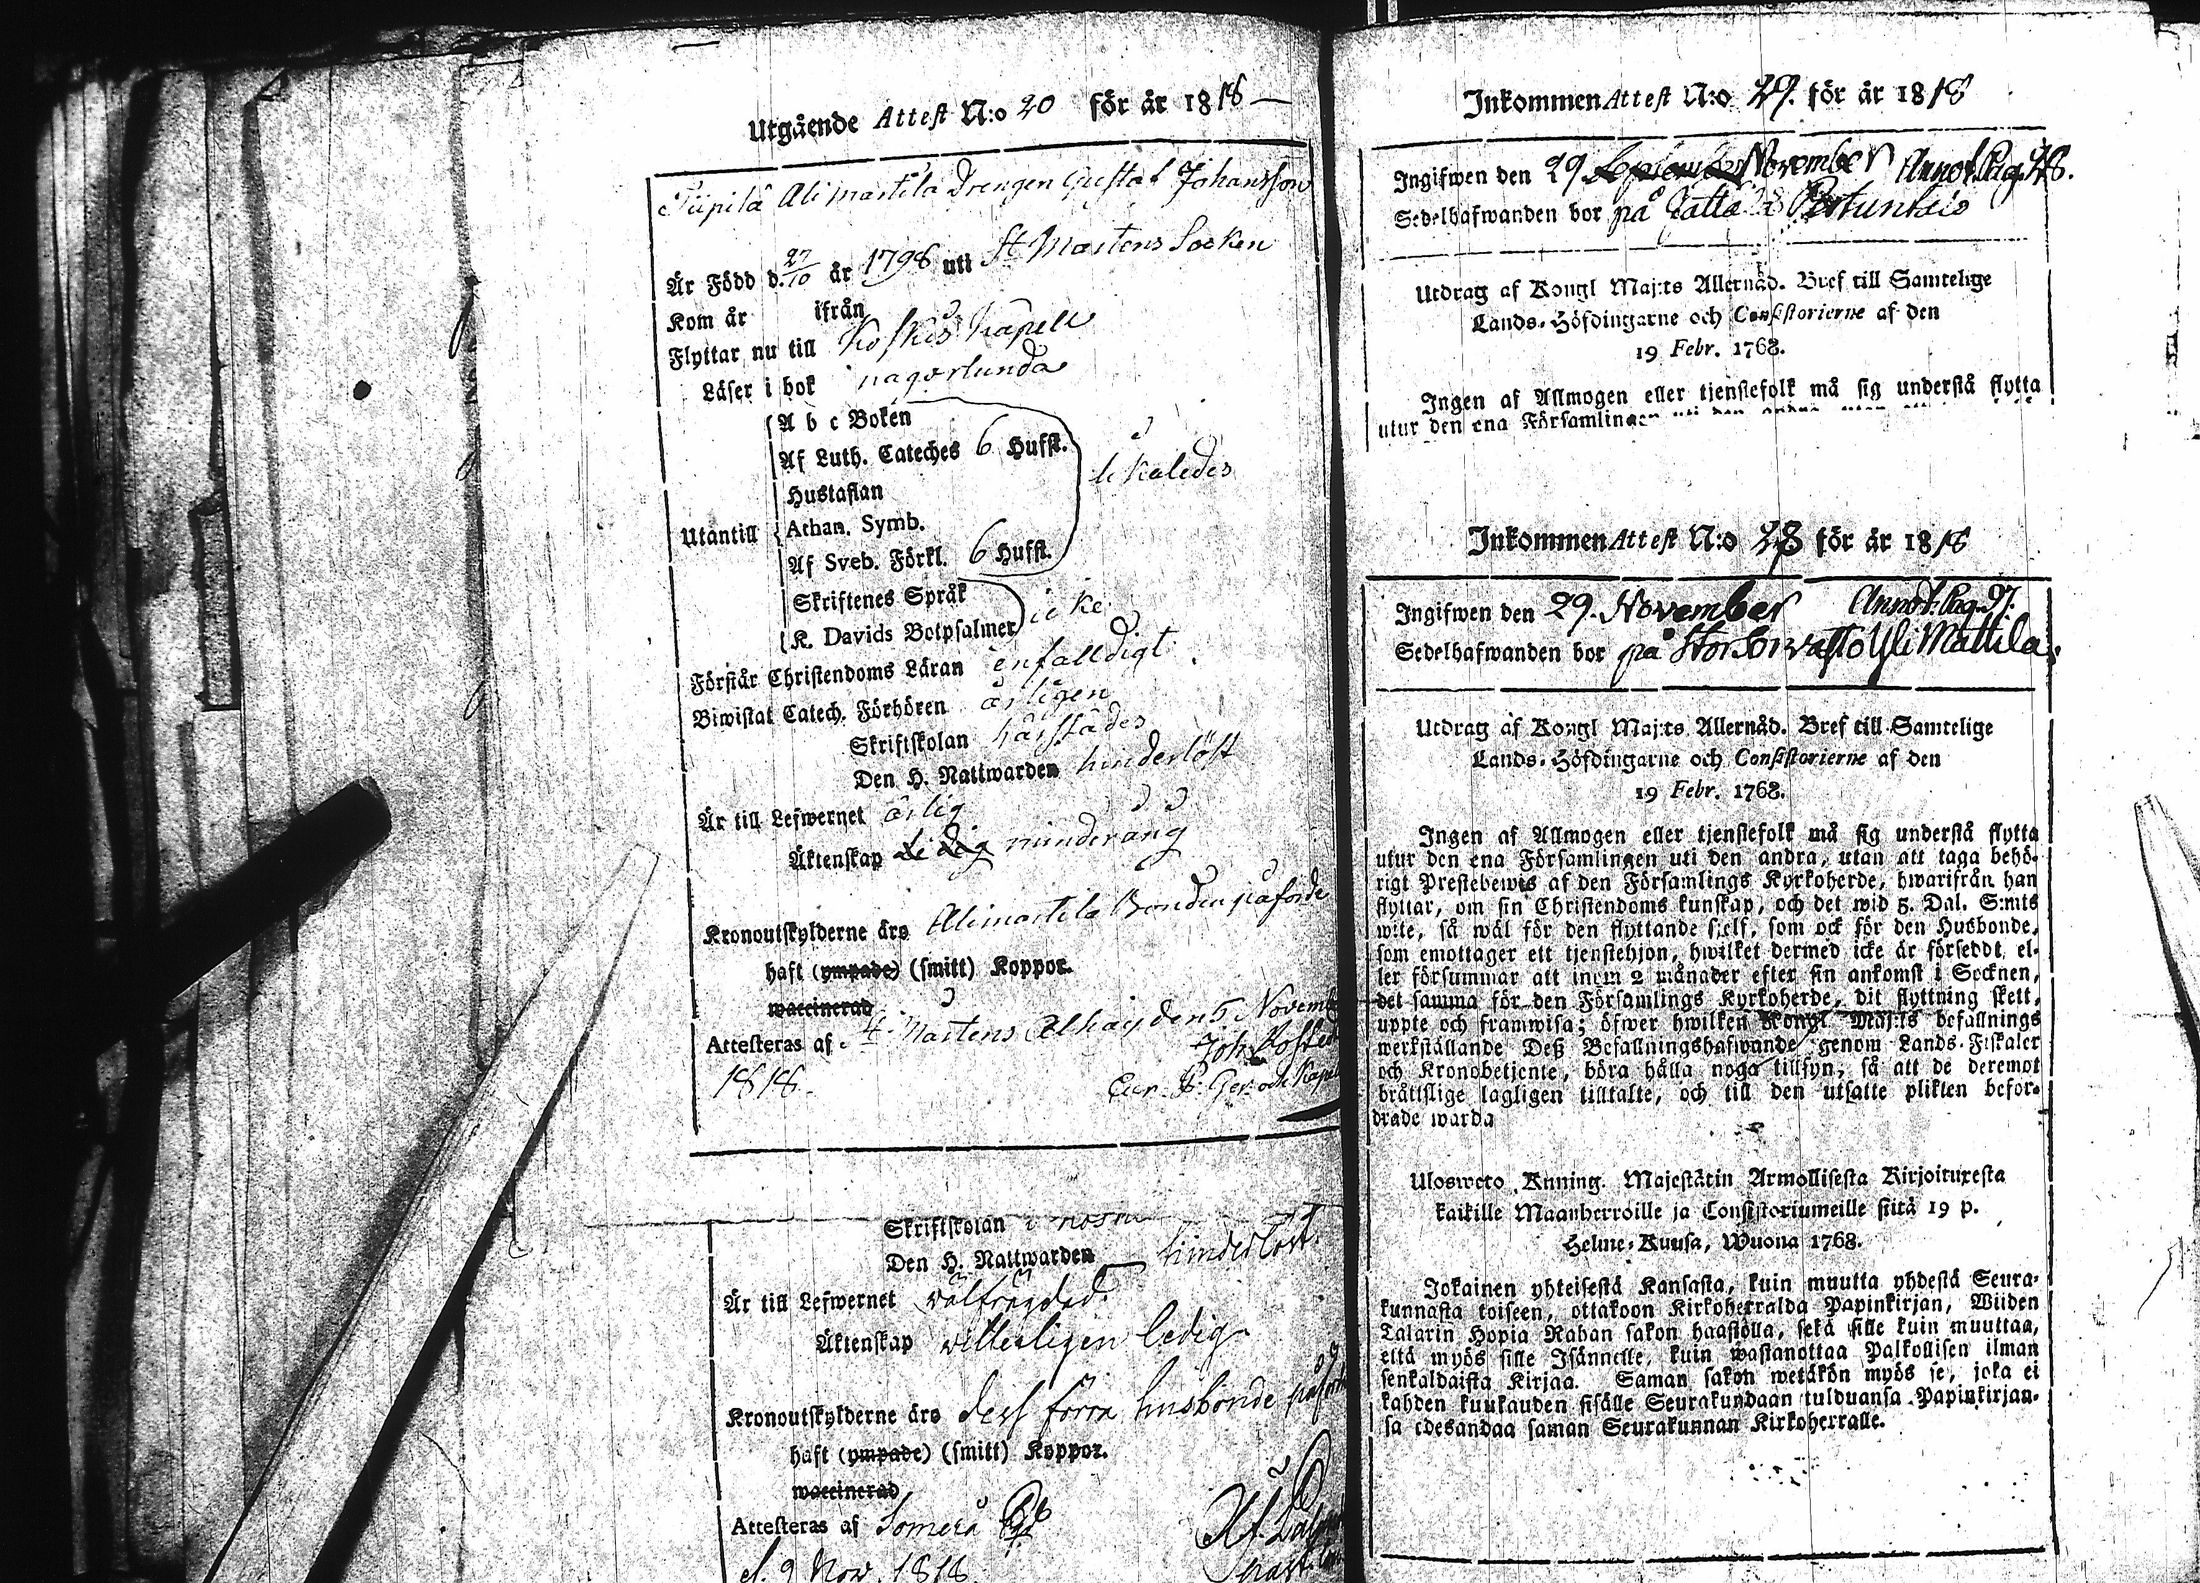 Utgående Attest N:o 20 för år 1818
Tiipilä Alimartila Drengen Gustaf Johansson
Är Född d. 27/10 år 1798 uti St Martens Socken
Kom år ifrån
Flyttar nu till Koskis Kapell
Läser i bok någorlunda
Utantill
A b c Boken
Af Luth. Cateches 6 Hufst.
Hustaflan
Athan. Symb.
Af Sveb. Förkl. 6 Hufst.
likaledes
Skriftenes Språk
K. Davids Botpsalmer
icke
Förstår Christendoms Läran enfalldigt
Biwistat Catech. Förhören årligen
Skriftskolan härstädes
Den H. Nattwarden hinderlöst
Är till Lefwernet ärlig
Äktenskap Ledig minderårig
Kronoutskylderne äro Alimartila Bonden påförde
haft (ympade) (smitt) Koppor.
waccinerad
Attesteras af St Martens den 5 Novemb
1818.
Joh.
Skriftskolan
Den H. Nattwarden hinderlöst.
Är till Lefwernet wälfrägdad
Äktenskap wetterligen ledig
Kronoutskylderne äro dess förra husbonde påförde
haft (ympade) (smitt) Koppor.
waccinerad
Attesteras af Somero
d. 9 Nov. 1818
Inkommen Attest N:o 29. för år 1818
Ingifwen den 29 September November Annot. Pag. 48.
Sedelhafwanden bor på
Utdrag af Kongl Maj:ts Allernåd. Bref till Samtelige
Lands-Höfdingarne och Consistorierne af den
19 Febr. 1768.
Ingen af Allmogen eller tjenstefolk må sig understå flytta
utur den ena Församlingen uti den andra, utan att
Inkommen Attest N:o 28 för år 1818
Ingifwen den 29. November Annot. Pag. 97.
Sedelhafwanden bor på Storsorvasto Yli Mattila.
Utdrag af Kongl Maj:ts Allernåd. Bref till Samtelige
Lands-Höfdingarne och Consistorierne af den
19 Febr. 1768.
Ingen af Allmogen eller tjenstefolk må sig understå flytta
utur den ena Församlingen uti den andra, utan att taga behö-
rigt Prestebewis af den Församlings Kyrkoherde, hwarifrån han
flyttar, om sin Christendoms kunskap, och det wid 5. Dal. S:mts
wite, så wäl för den flyttande sjelf, som ock för den Husbonde,
som emottager ett tjenstehjon, hwilket dermed icke är försedt, el-
ler försummar att inom 2 månader efter sin ankomst i Socknen,
det samma för den Församlings Kyrkoherde, dit flyttning skett,
uppte och framwisa; öfwer hwilken Kongl. Maj:ts befallnings
werkställande Deß Befallningshafwande genom Lands-Fiskaler
och Kronobetjente, böra hålla noga tillsyn, så att de deremot
bråttslige lagligen tilltalte, och till den utsatte plikten befor-
drade warda
Uloswetto Kuning. Majestätin Armollisesta Kirjoituxesta
kaikille Maanherroille ja Consistoriumeille siitä 19 p.
Helme-Kuusa, Wuona 1768.
Jokainen yhteisestä Kansasta, kuin muutta yhdestä Seura-
kunnasta toiseen, ottakoon Kirkoherralda Papinkirjan, Wiiden
Talarin Hopia Rahan sakon haastolla, sekä sille kuin muuttaa,
että myös sille Isännelle, kuin wastanottaa Palkollisen ilman
senkaldaista Kirjaa. Saman sakon wetäkön myös se, joka ei
kahden kuukauden sisälle Seurakundaan tulduansa Papinkirjan-
sa edesandaa saman Seurakunnan Kirkoherralle.